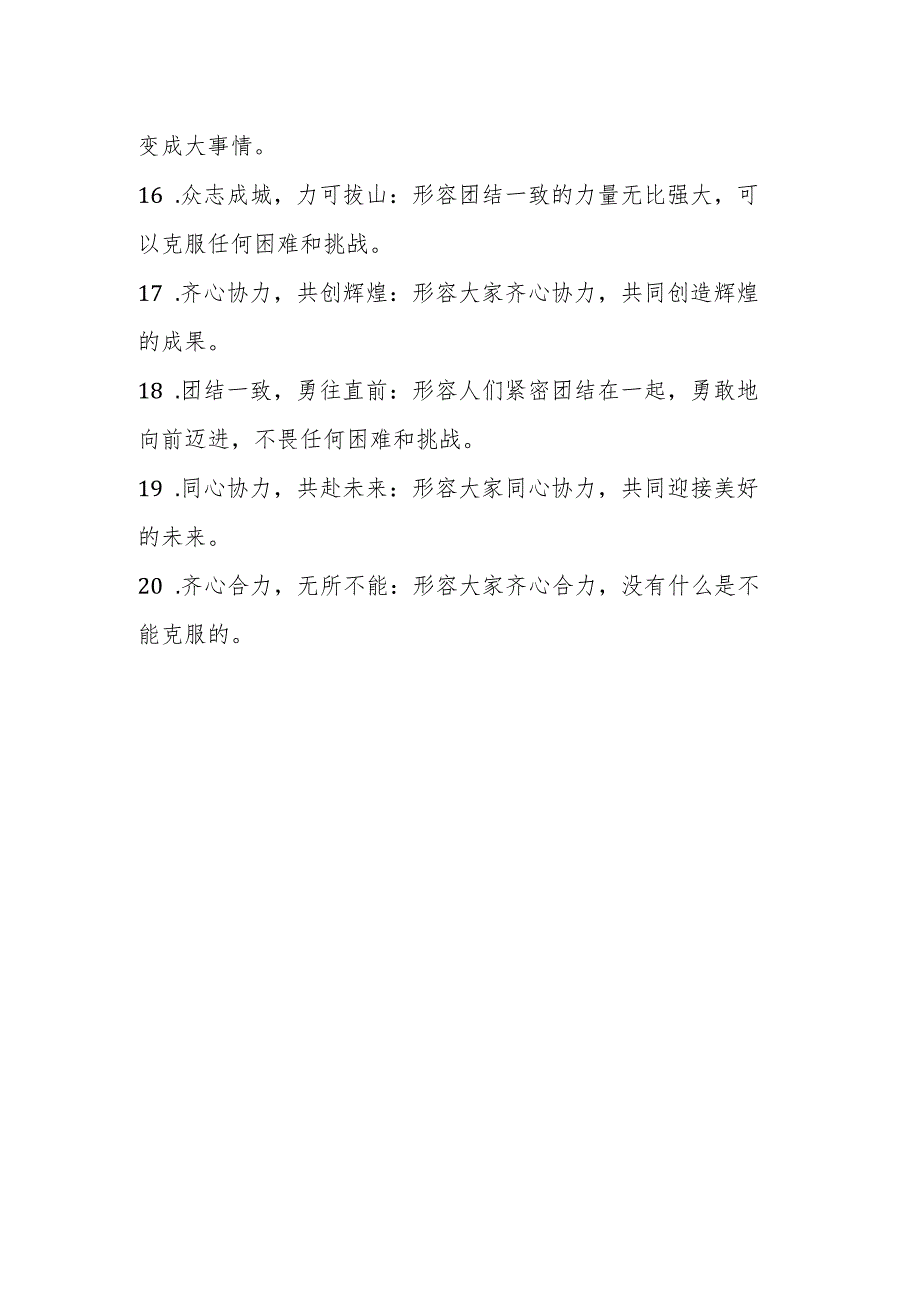 变成大事情。
16 .众志成城，力可拔山：形容团结一致的力量无比强大，可
以克服任何困难和挑战。
17 .齐心协力，共创辉煌：形容大家齐心协力，共同创造辉煌
的成果。
18 .团结一致，勇往直前：形容人们紧密团结在一起，勇敢地
向前迈进，不畏任何困难和挑战。
19 .同心协力，共赴未来：形容大家同心协力，共同迎接美好
的未来。
20 .齐心合力，无所不能：形容大家齐心合力，没有什么是不
能克服的。